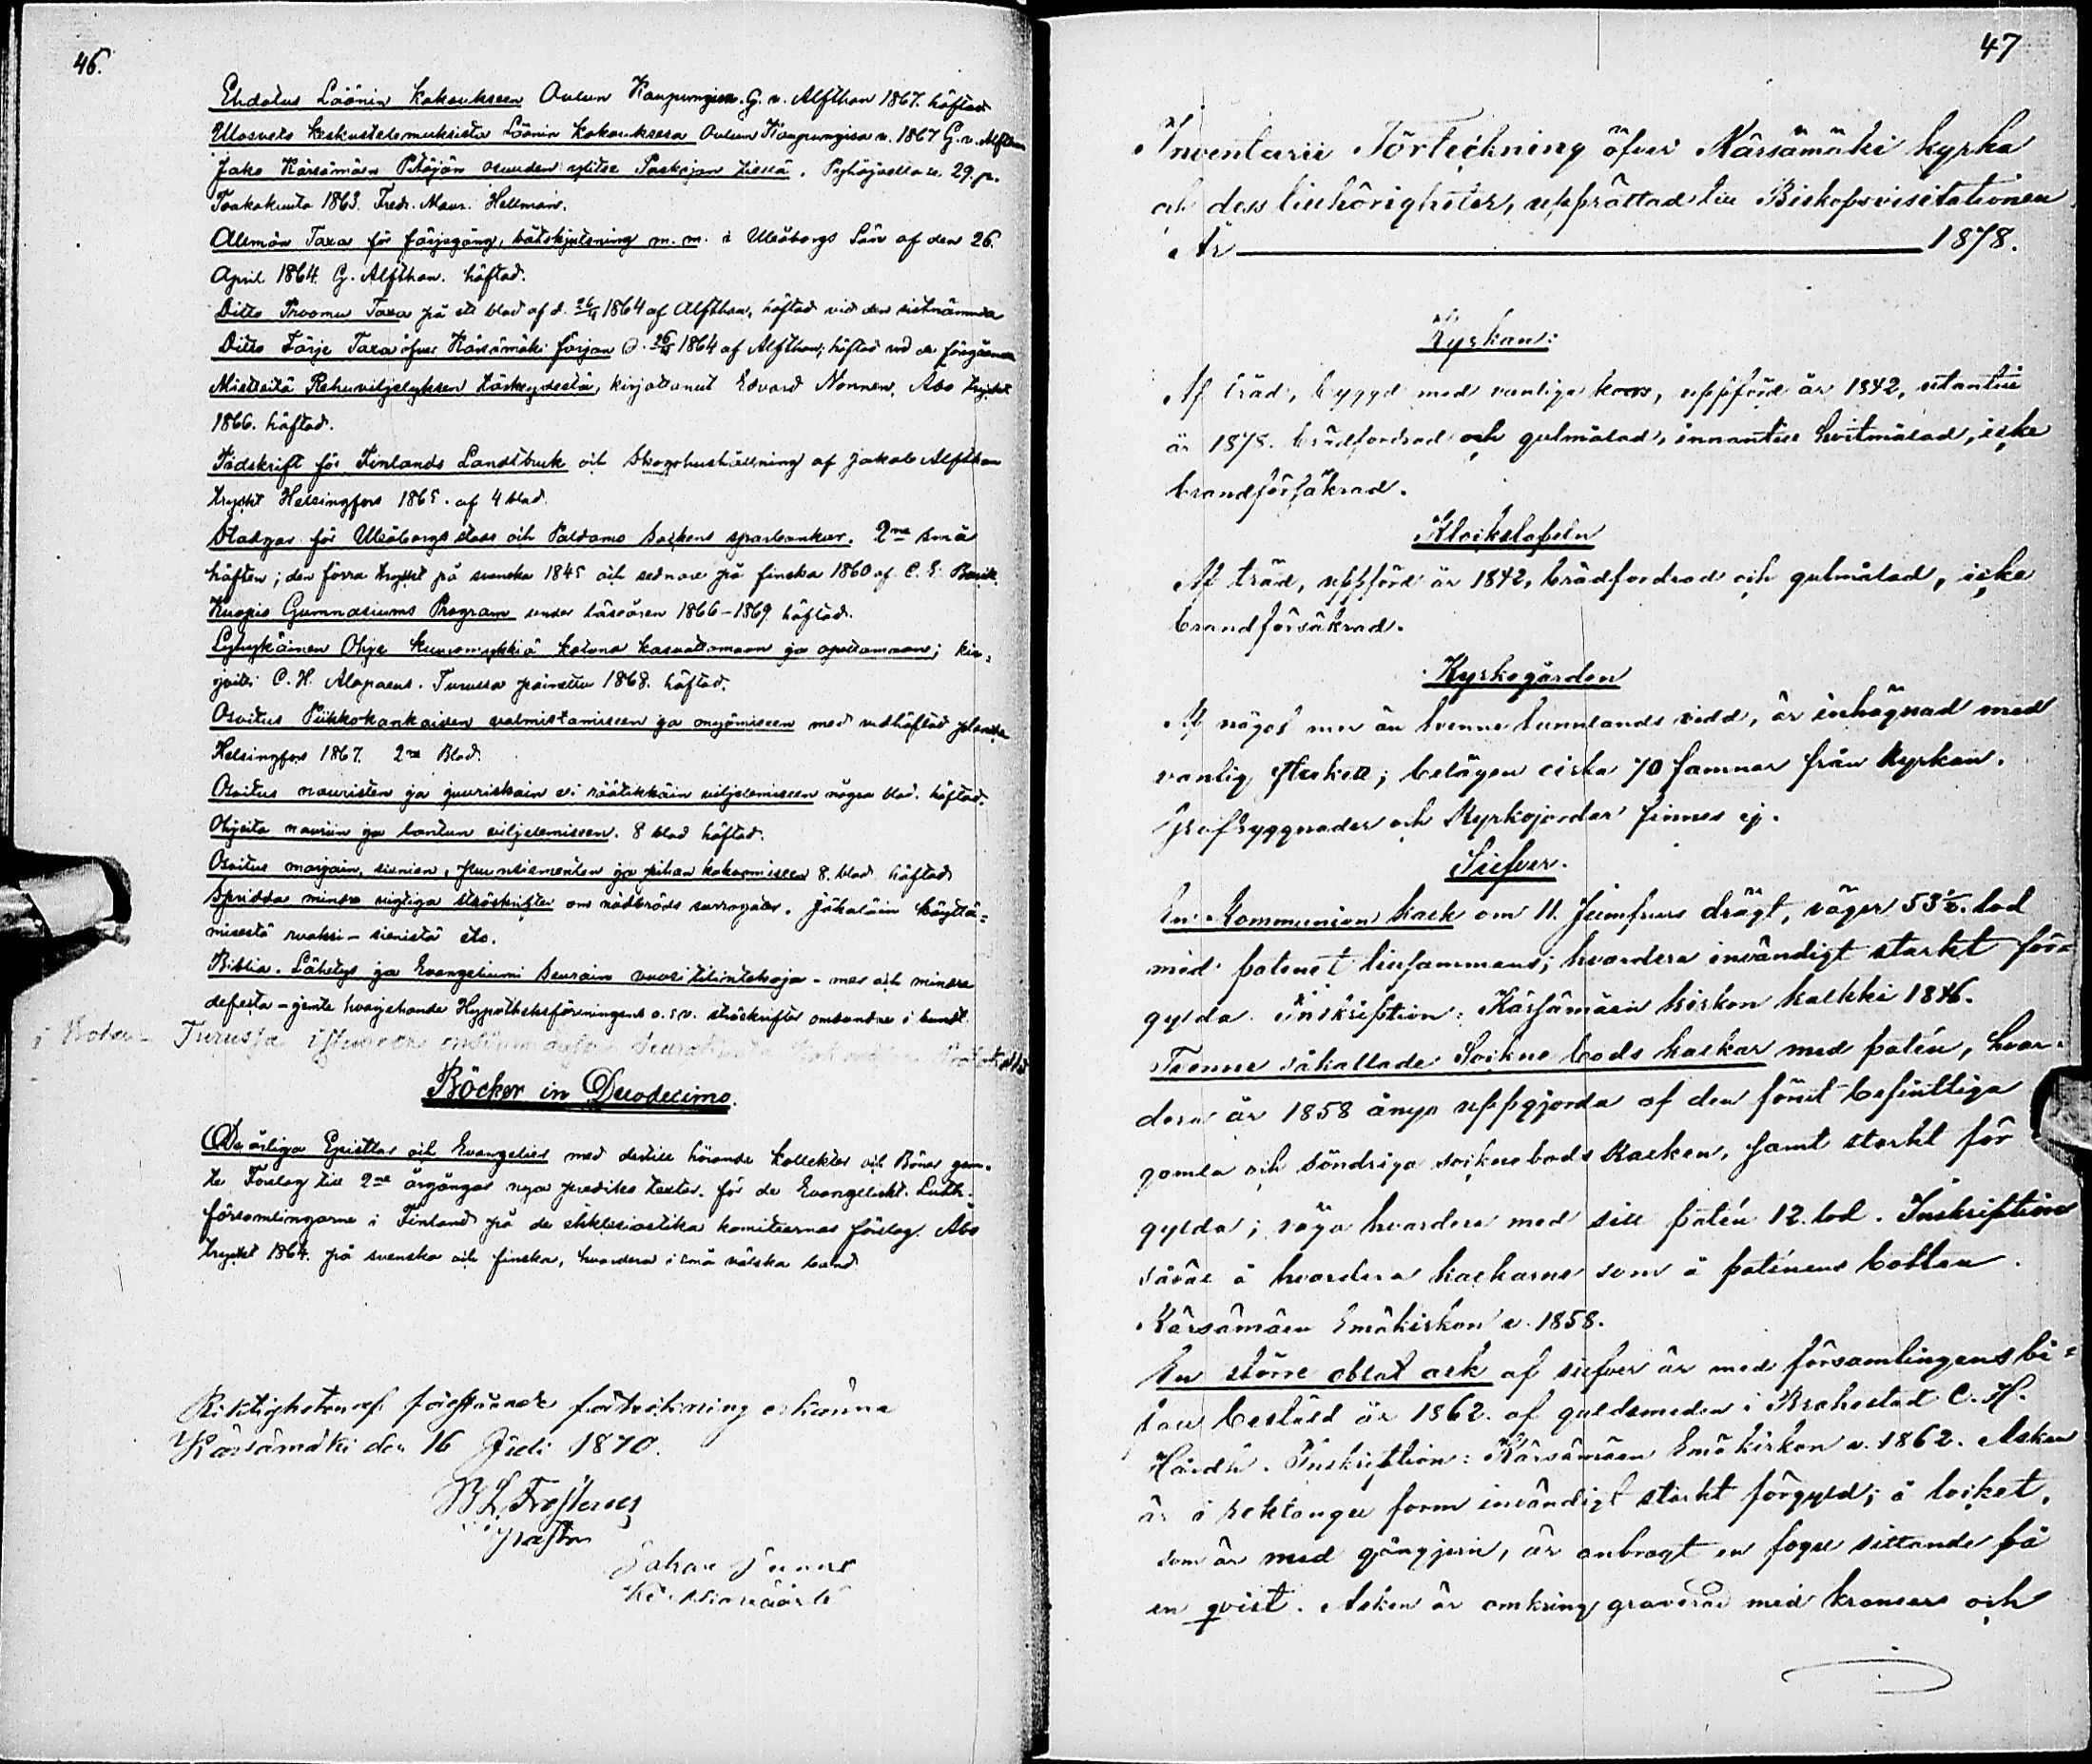 46.
Ehdotus Läänin kokoukseen Oulun Kaupungissa. G. v. Alfthan 1867. häftad
Ulosveto keskustelemuksista Läänin kokouksesa Oulun Kaupungisa v. 1867 G. v. Alfthan
Jako Kärsämäen Pitäjän osuuden ylitse Paskojan tiestä. Pyhäjoella 29. p.
Toukokuuta 1863. Fredr. Maur. Hellman.
Allmän Taxa för färjegång, båtskjutsning m. m. i Uleåborgs Län af den 26.
April 1864. G. Alfthan. häftad.
Ditto Promu Taxa på ett blad af d. 26/4 1864 af Alfthan, häftad vid den sistnämnda
Ditto Färje Taxa öfver Kärsämäki färjan d. 26/4 1864 af Alfthan; häftad vid de föregående
Mietteitä Rehuviljelyksen tärkeydestä, kirjottanut Edvard Nonnen, Åbo tryckt
1866. häftad.
Tidskrift för Finlands Landtbruk och Skogshushållning af Jakob Alfthan
tryckt Helsingfors 1865. af 4 blad.
Stadgar för Uleåborgs stads och Paldamo Sockens sparbankar. 2ne små
häften; den förra tryckt på svenska 1845 och sednare på finska 1860 af C. E. Barck.
Kuopio Gymnasiums Program under läseåren 1866-1869 häftad.
Lyhykäinen Ohje kuuromykkiä kotona kasvattamaan ja opettamaan; kir-
joitti C. H. Alopaeus. Turussa painettu 1868. häftad.
Osoitus Piikkokankaiden valmistamiseen ja myömiseen med vidhäftad plansch
Helsingfors 1867. 2ne Blad.
Osoitus nauristen ja juuriskain eli räätikkäin viljelemiseen några blad. häftad.
Ohjeita nauriin ja lantun viljelemiseen. 8 blad häftad.
Osoitus marjain, sienien, puunsiementen ja pihan kokoomiseen 8. blad häftad
Spridda mindre vigtiga ströskrifter om nödbröds surrogater. Jäkäläin käyttä-
misestä ruaksi - sienistä etc.
Biblia. Lähetys ja Evangeliumi Seurain vuosi tilintekoja - mer och mindre
defecta - jemte hvarjehanda Hypotheksföreningens o. s. v. ströskrifter ombundne i bundt.
Turussa
Böcker in Duodecimo.
De årliga Epistlar och Evangelier med dertill hörande kollekter och Böner jem-
te Förslag till 2ne årgångar nya prediko texter. för de Evangeliskt. Luth.
församlingarne i Finland på de ekklesiastika komiteernas förslag. Åbo
tryckt 1864. på svenska och finska, hvardera i små välska band
Riktigheten af föregående förteckning erkänna
Kärsämäki den 16 Juli 1870.
Pastor
Johan
47
Inventarii Förteckning öfver Kärsämäki kyrka
och dess tillhörigheter, upprättad till Biskopsvisitationen
År 1878.
Kyrkan:
Af träd, byggd med vanliga kors, uppförd år 1842, utantill
år 1878. brädfodrad och gulmålad, innantill hvitmålad, icke
brandförsäkrad.
Klockstapeln
Af träd, uppförd år 1842, brädfodrad och gulmålad, icke
brandförsäkrad.
Kyrkogården
Af något mer än tvenne tunnlands vidd, är inhägnad med
vanlig staket; belägen cirka 70 famnar från Kyrkan.
Grafbyggnader och Kyrkojordar finnes ej.
Silfver.
En Kommunion kalk om 11. Jumfrurs drägt, väger 53 1/2. lod
med patenet tillsammans; hvardera invändigt starkt för-
gylda. Inskription: Kärsämäen kirkon kalkki 1846.
Tvenne såkallade Sockne bods kalkar med patén, hvar-
dera år 1858 ånyo uppgjorda af den förut befintliga
gamla och söndriga socknebods kalken, samt starkt för
gylda; väga hvardera med sitt patén 12. lod. Inskription
såväl å hvardera kalkarne som å paténens botten.
Kärsämäen Emäkirkon v. 1858.
En större oblat ask af silfver är med församlingens be-
kostnad beställd år 1862. af guldsmeden i Brahestad C. H.
Hårdh. Inskription: Kärsämäen Emäkirkon v. 1862. Asken
är i rektangel form invändigt starkt förgyld; å locket,
som är med gångjern, är anbragt en fogel sittande på
en qvist. Asken är omkring graverad med kransar och